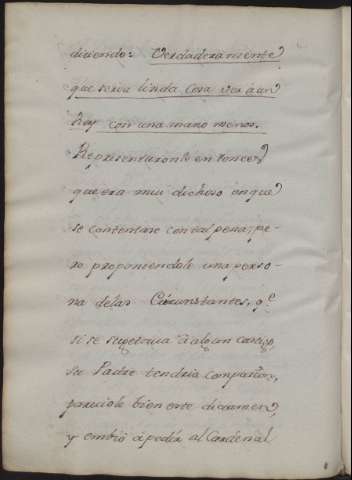 diciendo: Verdaderamente
que seria linda Cosa ver à un
Rey con una mano menos.
Representaronle entonces,
que era mui dichoso en que
se contentase con tal pena; pe-
ro proponiendole una perso-
na delas Circunstantes, q.e
si se sugetava à algun castigo,
su Padre tendria compasion,
pareciole bien este dictamen,
y embiò à pedir al Cardenal